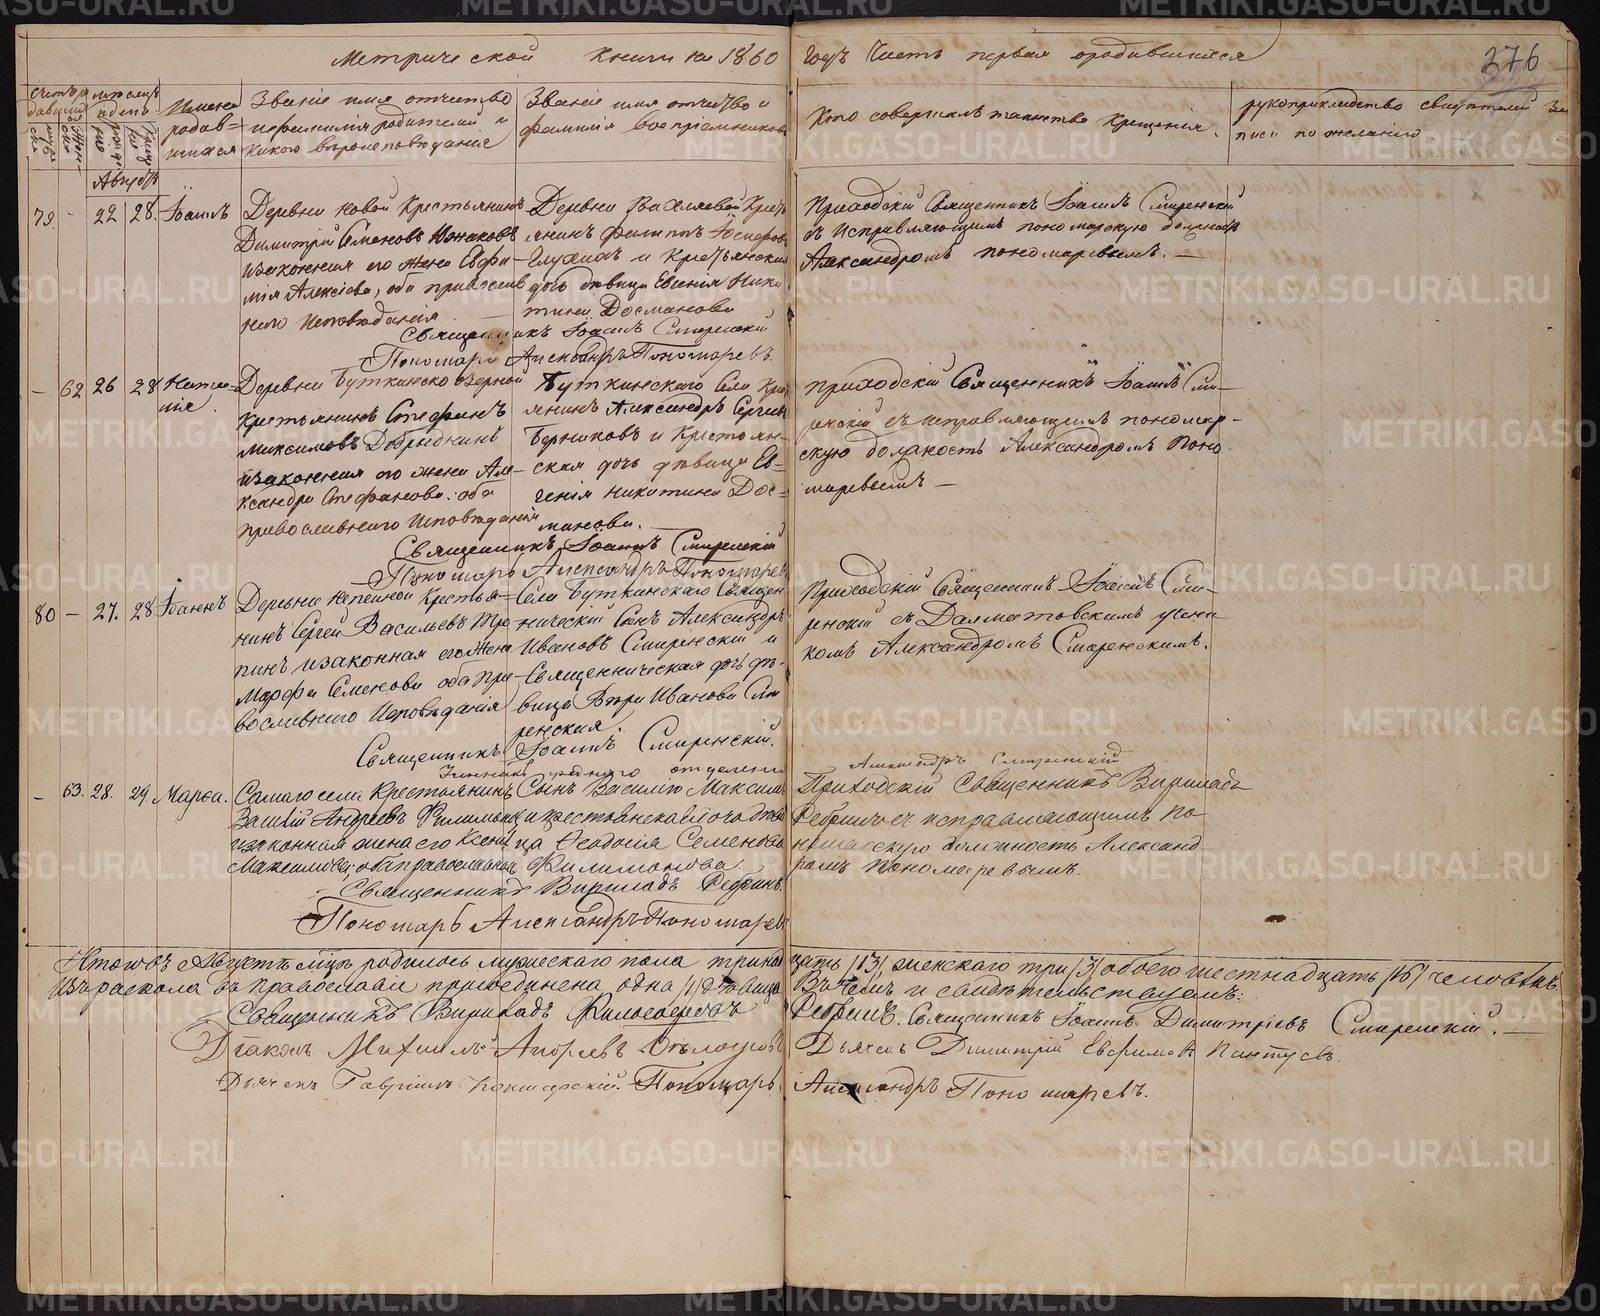 Метрической Книги на 1860
годъ Часть первая о родившихся
276
Имена
родив=
шихся
Званіе имя отчество
и фамилія родителей и
какого вѣроисповѣданія
Званіе имя отчество и
фамилія воспріемниковъ
Кто совершалъ таинство Крещенія.
рукоприкладство свидѣтелей за
писи по желанію
Августъ
79. - 22 28. Іоаннъ
Деревни Новой Крестьянинъ
Димитрій Семеновъ Южаковъ
и законная его жена Евфи-
мія Алексіева, оба православ
наго Исповѣданія.
Филиппъ Іосифовъ
и Крестьянская
дочь дѣвица Евгенія Ники
тина Досманова
Приходскій Священникъ Іоаннъ Смиренскій
съ исправляющимъ пономарскую должность
Александромъ Пономаревымъ. —
Священникъ Іоаннъ Смиренскій
Пономарь Александръ Пономаревъ.
- 62 26 28 Ната=
лія.
Деревни Буткинско озерной
Крестьянинъ Стефанъ
Максимовъ Добрынинъ
и законная его жена Але
ксандра Стефанова. оба
православнаго Исповѣданія
Буткинскаго Села Крест
янинъ Александръ Сергѣевъ
Берниковъ и Крестьян-
ская дочь дѣвица Ев=
генія Никитина Дос=
манова.
Приходскій Священникъ Іоаннъ Сми—
ренскій съ исправляющимъ пономар-
скую должность Александромъ Поно
маревымъ —
Священникъ Іоаннъ Смиренскій
Пономарь Александръ Пономаревъ
80 — 27. 28 Іоаннъ
Деревни Непеиной Крестья=
нинъ Сергѣй Васильевъ Тро
пинъ и законная его жена
Марфа Семенова оба пра
вославнаго Исповѣданія
Села Буткинскаго Священ
ническій Сынъ Александръ
Ивановъ Смиренскій и
Священническая дочь дѣ-
вица Вѣра Иванова Сми
ренская.
Приходскій Священникъ Іоаннъ Сми-
ренскій съ Далматовскимъ учени
комъ Александромъ Смиренскимъ.
Священникъ Іоаннъ Смиренскій.
отделенія
Александръ Смиренскій
- 63. 28. 29. Марѳа.
Самаго села Крестьянинъ
Василій Андреевъ Филимоновъ
и законная жена его Ксенія
Максимова, оба православныя
Сынъ Василію Максим
и крестьянская дочь дѣви
ца Ѳеодосія Семенова
Филимонова
Приходскій Священникъ Вириладъ
Ребринъ съ исправляющимъ по-
номарскую должность Александ
ромъ Пономаревымъ.
Священникъ Вириладъ Ребринъ.
Пономарь Александръ Пономаревъ
Итого въ Августѣ м͠цѣ родилось мужескаго пола тринад
цать /13/, женскаго три /3/ обоего шестнадцать /16/ человѣкъ.
изъ раскола въ православіе присоединена одна /1/ дѣвица
Въ чемъ и свидѣтельствуемъ:
Священникъ Вириладъ
Ребринъ. Священникъ Іоаннъ Димитріевъ Смиренскій. —
Діаконъ Михаилъ Андреевъ
Дьячекъ Димитрій Евфимовъ Пантуевъ.
Дьячекъ Гавріилъ Пономарь
Александръ Пономаревъ.
METRIKI.GASO-URAL.RU